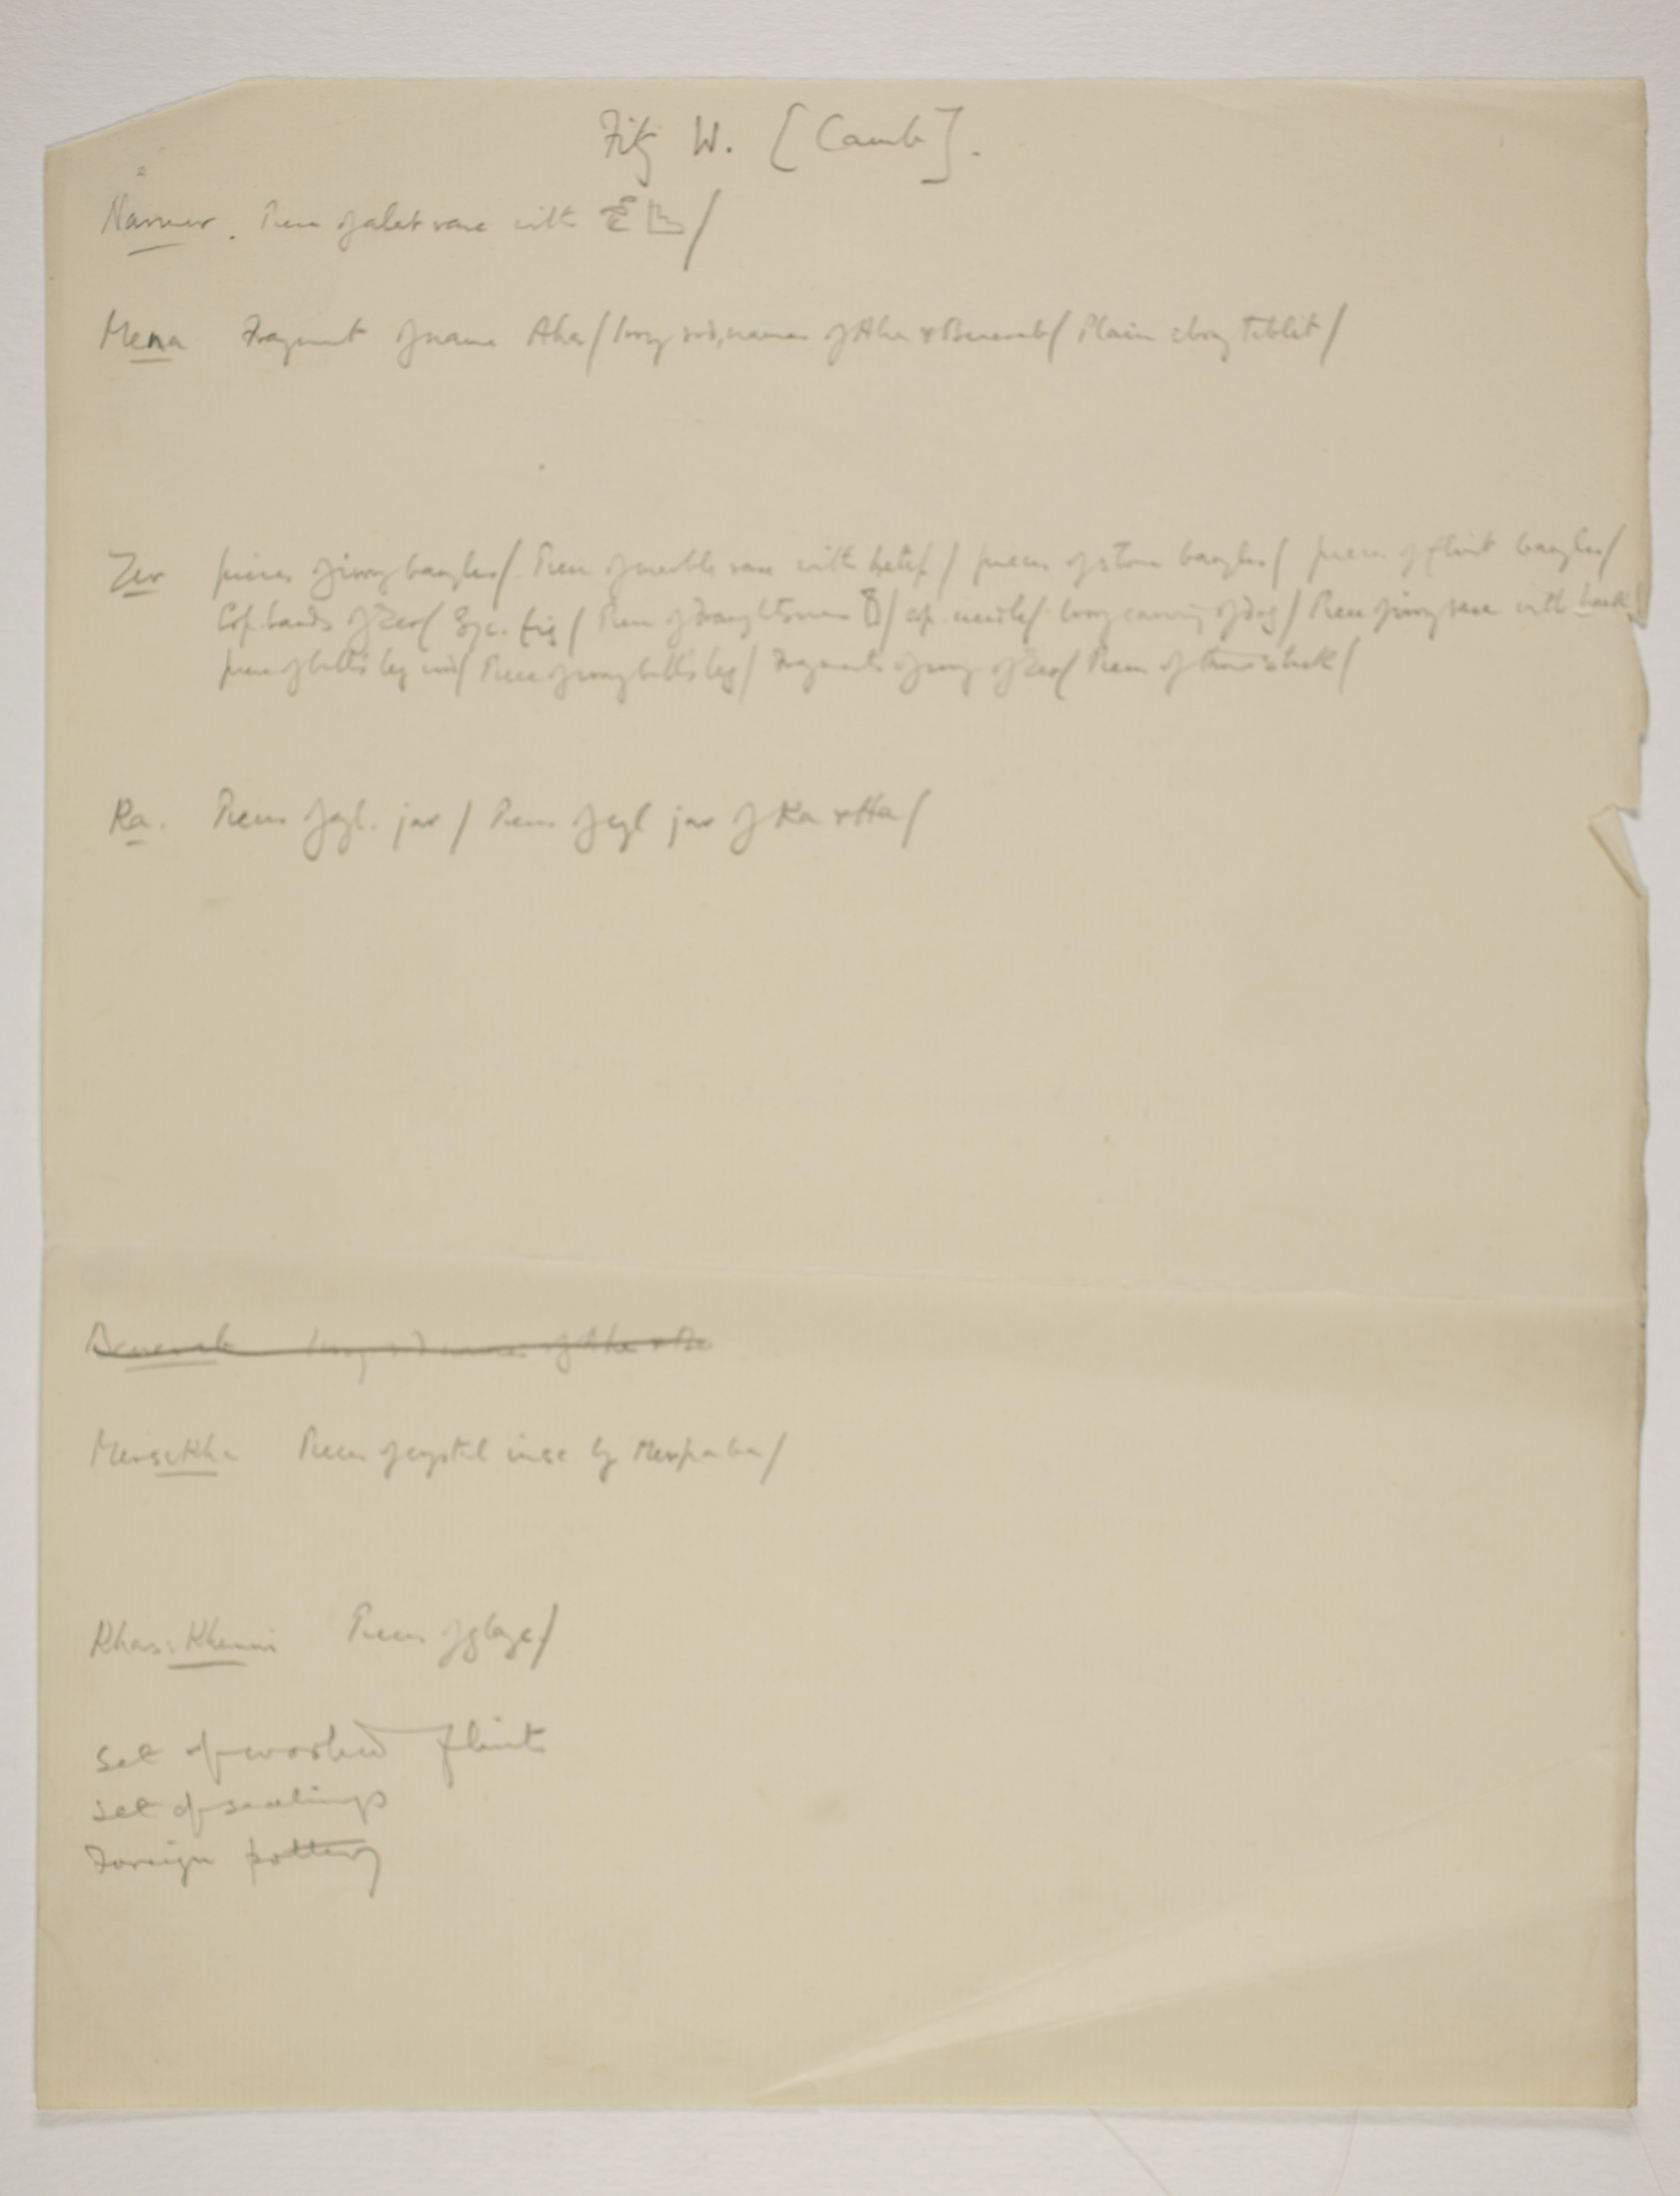 Fitz W. [Camb].
Narmer. Piece of alab vase with
Mena Fragment of name Aha/ Ivory rod, names of Aha & Benerab/ Plain ebony tablet/
Zer pieces of ivory bangles/ Piece of marble vase with hetep/ pieces of stone bangles/ pieces of flint bangles/
Cop. bands of Zer/ Syc. fig/ Piece of draughtsman / cop. needle/ Ivory carving of dog/ Piece of ivory vase with
piece of bull's leg / Piece of ivory bull's leg/ Fragments of ivory of Zer/ Piece of stick/
Ka. Piece of cyl. jar / Piece of cyl jar of Ka & Ha/
Benerab Ivory rod name of Aha & Be
Mersekha Piece of crystal insc. by Merpaba/
Khasekhemui Piece of glaze/
Set of worked flint
Set of sealings
Foreign pottery